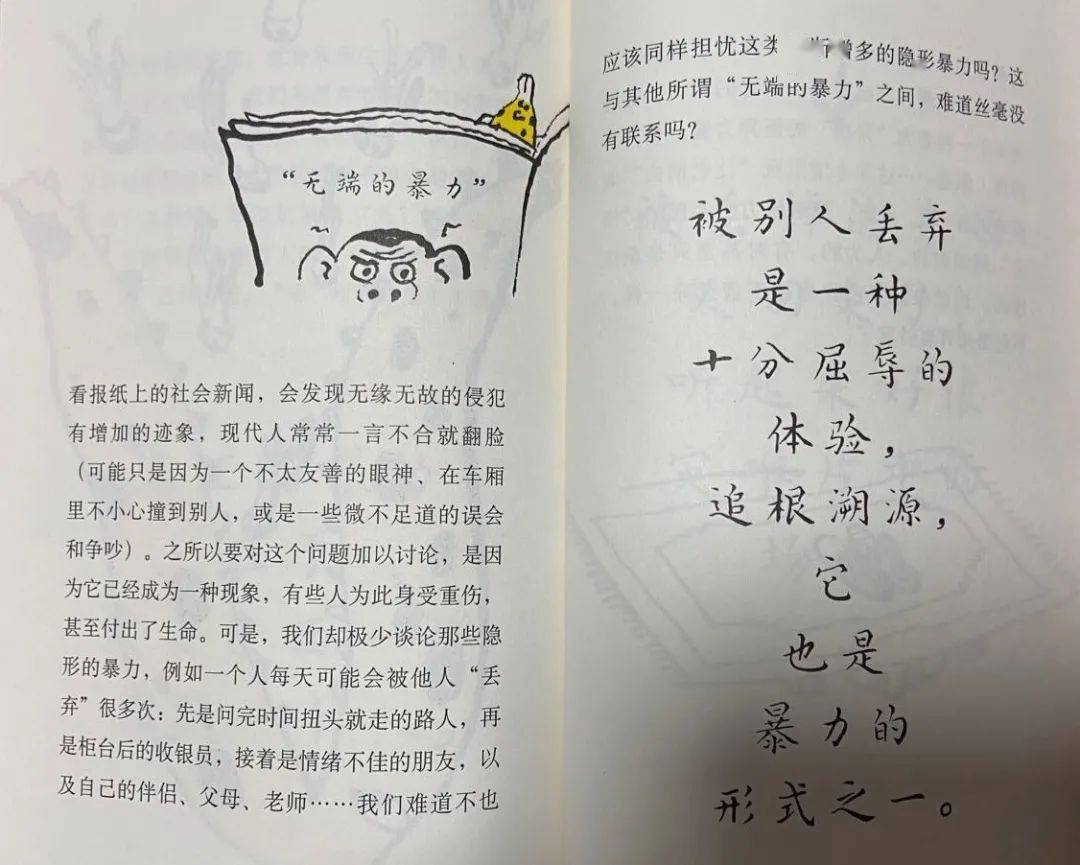 “无端的暴力”
看报纸上的社会新闻，会发现无缘无故的侵犯
有增加的迹象，现代人常常一言不合就翻脸
（可能只是因为一个不太友善的眼神、在车厢
里不小心撞到别人，或是一些微不足道的误会
和争吵）。之所以要对这个问题加以讨论，是因
为它已经成为一种现象，有些人为此身受重伤，
甚至付出了生命。可是，我们却极少谈论那些隐
形的暴力，例如一个人每天可能会被他人“丢
弃”很多次：先是问完时间扭头就走的路人，再
是柜台后的收银员；接着是情绪不佳的朋友，以
及自己的伴侣、父母、老师……我们难道不也
应该同样担忧这类 增多的隐形暴力吗？这
与其他所谓“无端的暴力”之间，难道丝毫没
有联系吗？
被别人丢弃
是一种
十分屈辱的
体验，
追根溯源，
它
也是
暴力的
形式之一。